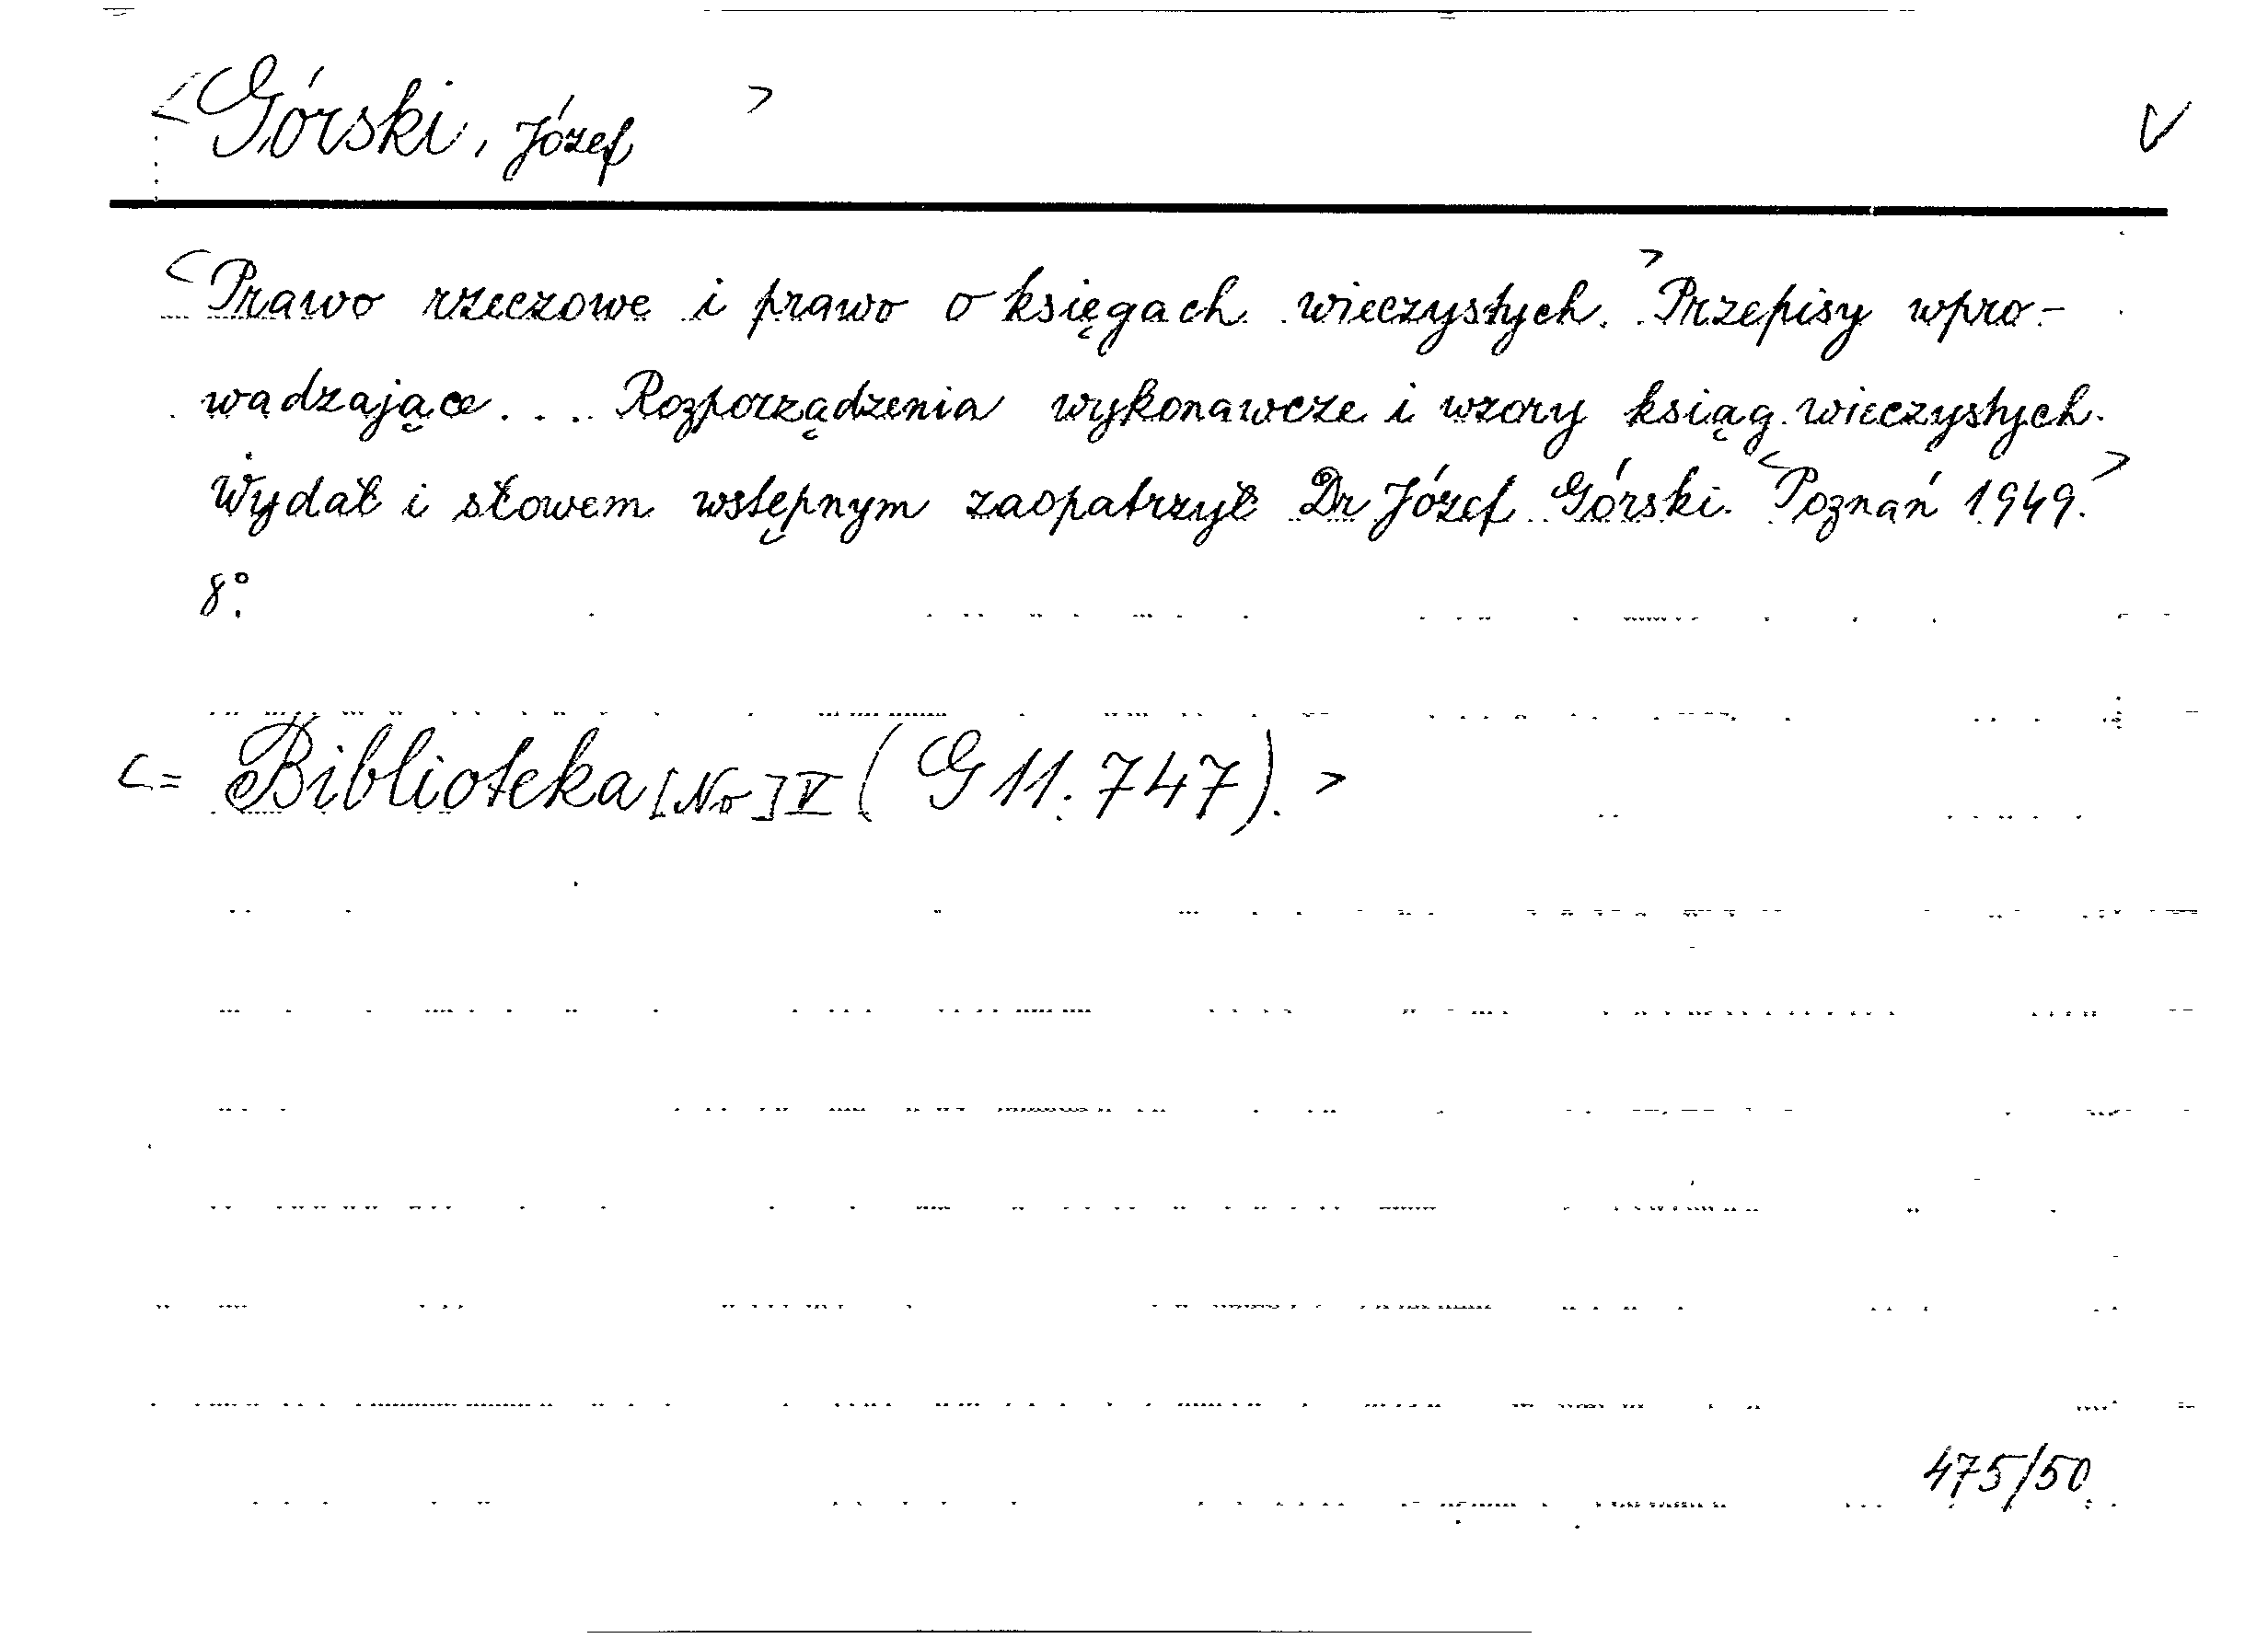 <Górski, Józef > V
<Prawo rzeczowe i prawo o księgach wieczystych.> Przepisy wpro-
wadzające... Rozporządzenia wykonawcze i wzory ksiąg wieczystych.
Wydał i słowem wstępnym zaopatrzył Dr Józef Górski. <Poznań 1949.>
8°.
<= Biblioteka [No] V (G 11.747). >
475/50